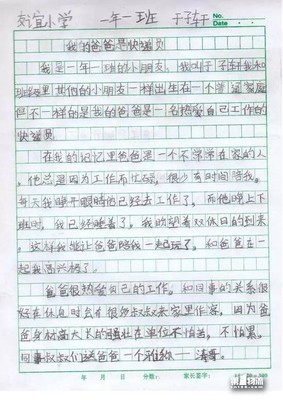 实宜小学 一年一班 于子轩 No.
Date.
我的爸爸是快递员
我是一年一班的小朋友,我叫于子轩我和
班级里其他的小朋友一样出生在一个普通家庭
但不一样的是我的爸爸是一名热爱自己工作的
快递员
在我的记忆里爸爸是一个不常常在家的人
。他总是因为工作而忙碌,很少有时间陪我。
每天我睁开眼睛他已经去工作了,而他晚上下
班时,我已经睡着了。我盼望着双休日的到来
。这样我能让爸爸陪我一起玩了,和爸爸在一
起我高兴极了。
爸爸很热爱自己的工作,和同事的关系很
好在休息时会有很多叔叔来家里作客,因为爸
爸身材高大长的强壮在单位不怕苦,不怕累,
同事叔叔们送爸爸一个
年 月 日 分数: 家长签字: